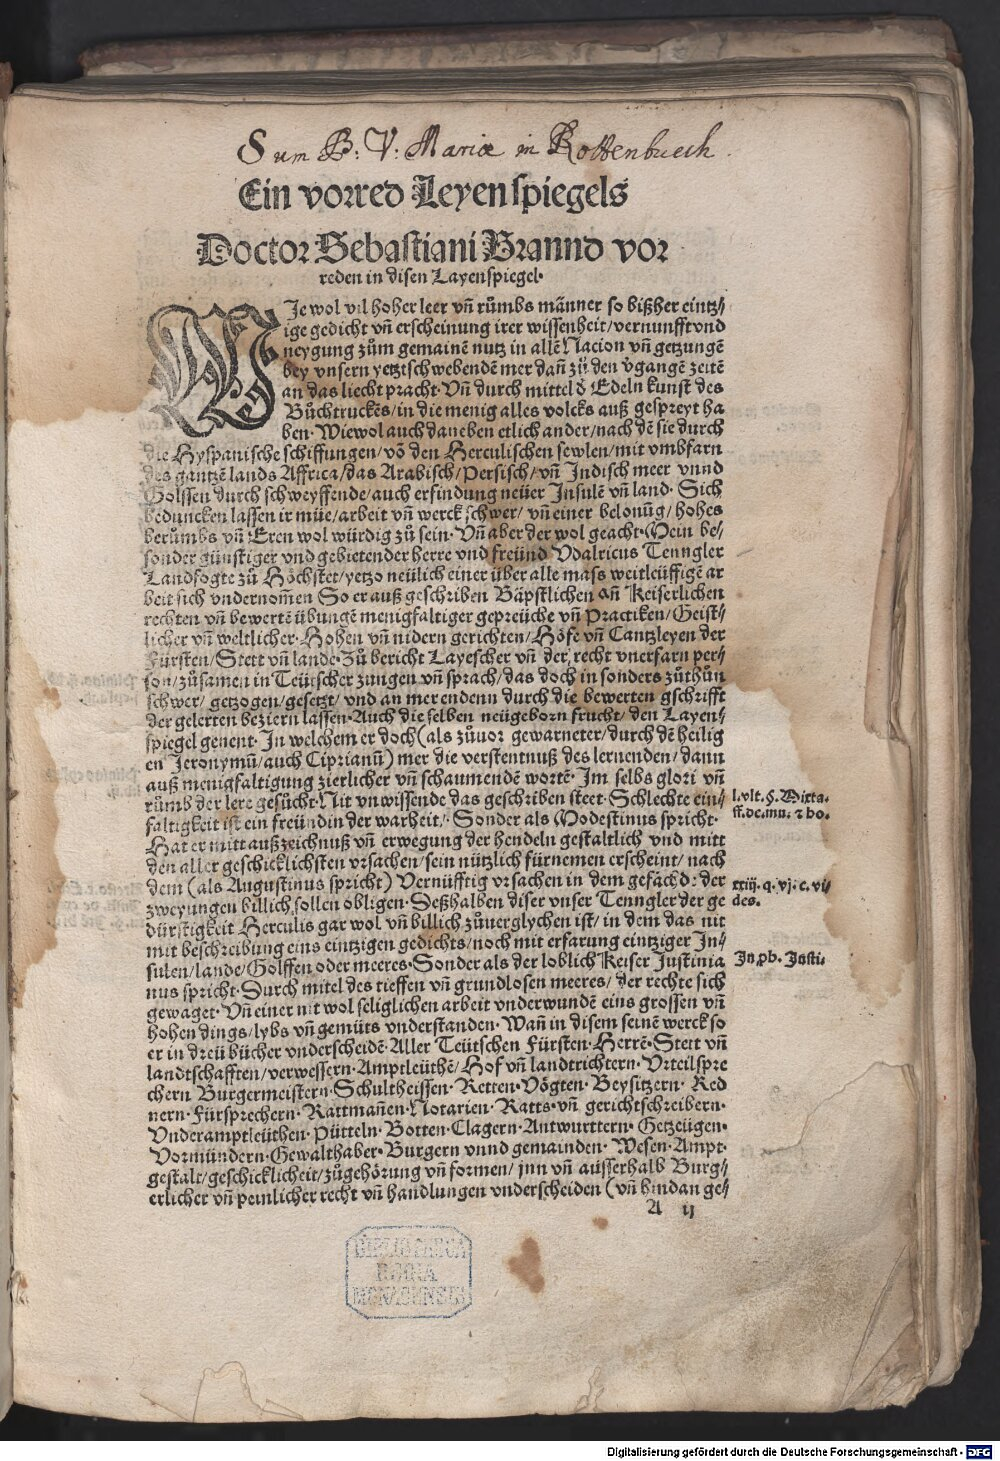 Sum B: V: Mariæ in Rottenbuech.
Ein vorred Leyenspiegels
Doctor Sebastiani Brannd vor
reden in disen Layenspiegel.
WIe wol vil hoher leer vñ růmbs männer so bißher eintz/
ige gedicht vñ erscheinung irer wissenheit/vernunfft vnd
neygung zům gemainē nutz in allē Nacion vñ getzungē
bey vnsern yetztschwebendē mer dañ zů den v̓gangē zeitē
an das liecht pracht. Vñ durch mittel d̓ Edeln kunst des
Bůchtruckēs/in die menig alles volcks auß gespreyt ha
ben. Wiewol auch daneben etlich ander/nach dē sie durch
die Hyspanische schiffungen/vō den Herculischen sewlen/mit vmbfarn
des gantzē lands Affrica/das Arabisch/Persisch/vñ Indisch meer vnnd
Golffen durch schweyffende/auch erfindung neüer Insulē vñ land. Sich
beduncken lassen ir müe/arbeit vñ werck schwer/vñ einer belonūg/hohes
berůmbs vñ Eren wol würdig zů sein. Vñ aber der wol geacht. Mein be/
sonder günstiger vnd gebietender herre vnd freünd Vdalricus Tenngler
Landfogte zů Höchstet/yetzo neülich einer über alle mass weitleüffigē ar
beit sich vndernom̄en So er auß geschriben Bäpstlichen añ Keiserlichen
rechten vñ bewertē übungē menigfaltiger gepreüche vñ Practiken/Geist/
licher vñ weltlicher. Hohen vñ nidern gerichten/Höfe vñ Cantzleyen der
Fürsten/Stett vñ lande. Zů bericht Layescher vñ der recht vnerfarn per/
son/zůsamen in Teütscher zungen vñ sprach/das doch in sonders zůthůn
schwer/getzogen/gesetzt/vnd an mer endenn durch die bewerten gschrifft
der gelerten beziern lassen. Auch die selben neügeborn frucht/den Layen/
spiegel genent. In welchem er doch (als zůuor gewarneter/durch dē heilig
en Jeronymū/auch Ciprianū) mer die verstentnuß des lernenden/dann
auß menigfaltigung zierlicher vñ schaumendē wortē. Im selbs glori vñ
růmb der lere gesůcht. Nit vnwissende das geschriben steet. Schlechte ein/
faltigkeit ist ein freündin der warheit/. Sonder als Modestinus spricht.
Hat er mitt außzeichnuß vñ erwegung der hendeln gestaltlich vnd mitt
den aller geschicklichsten vrsachen/sein nützlich fürnemen erscheint/nach
dem (als Augustinus spricht) Vernüfftig vrsachen in dem gefäch d: der
zweyungen billich sollen obligen. Deßhalben diser vnser Tenngler der ge
dürstigkeit Herculis gar wol vñ billich zůuerglychen ist/in dem das nit
mit beschreibung eins eintzigen gedichts/noch mit erfarung eintziger In/
sulen/lande/Golffen oder meeres. Sonder als der loblich Keiser Justinia
nus spricht. Durch mitel des tieffen vñ grundlosen meeres/der rechte sich
gewaget. Vñ einer nit wol seliglichen arbeit vnderwundē eins grossen vñ
hohen dings/lybs vñ gemüts vnderstanden. Wañ in disem seinē werck so
er in dreü bücher vnderscheidē. Aller Teütschen Fürsten. Herrē. Stett vñ
landtschafften/verwessern. Amptleüthē/Hof vñ landtrichtern. Vrteilspre
chern Burgermeistern. Schultheissen. Retten. Vögten. Beysitzern. Red
nern. Fürsprechern. Rattmañen. Notarien. Ratts. vñ gerichtschreibern.
Vnderamptleüthen. Pütteln. Botten. Clagern. Antwurttern. Getzeügen.
Vormündern. Gewalthaber. Burgern vnnd gemainden. Wesen. Ampt.
gestalt/geschicklicheit/zůgehörung vñ formen/jnn vñ ausserhalb Burg/
erlicher vñ peinlicher recht vñ handlungen vnderscheiden (vñ hindan ge/
A ij
l. vlt. §. Mixta.
ff. de. mu. ⁊ ho.
xxiij. q. vj. c. vi/
des.
In ꝓb. Insti.
BIBLIOTHECA
REGIA
MONACENSIS
Digitalisierung gefördert durch die Deutsche Forschungsgemeinschaft - DFG